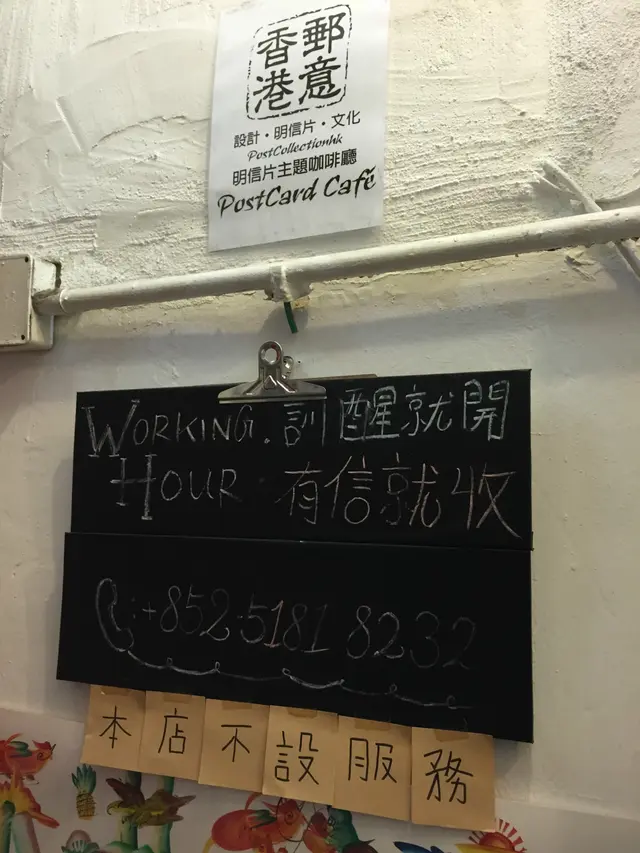 郵意
香港
設計・明信片・文化
PostCollectionhk
明信片主題咖啡廳
PostCard Café
WORKING. 訓醒就開
HOUR. 有信就收
:+852-5181 8232
本店不設服務